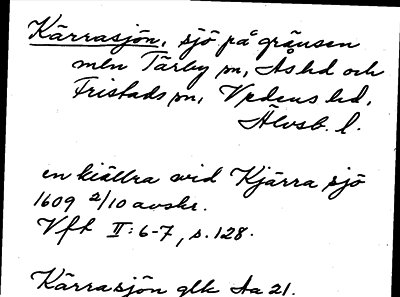 Kärrasjön, sjö på gränsen
mln Tärby sn, Ås hd och
Fristads sn, Vedens hd,
Älvsb. l.
en kiällra wid Kjärra sjö
1609 2/10 avskr.
Vft II:6-7, s. 128.
Kärrasjön glk Ha 21.